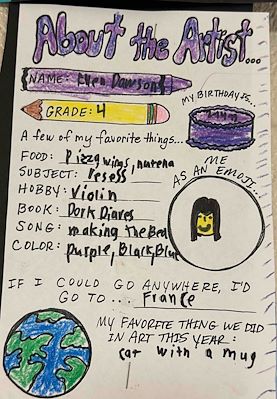 About the Artist...
NAME: Even Dawson
MY BIRTHDAY IS...
GRADE: 4
A few of my favorite things...
FOOD: Pizza wings, nutena
SUBJECT: resess
ME
AS AN EMOJI...
HOBBY: Violin
BOOK: Dork Diares
SONG: making the Bed
COLOR: purple, Black, Blue
IF I COULD GO ANYWHERE, I'D
GO TO... France
MY FAVORITE THING WE DID
IN ART THIS YEAR:
cat with a mug